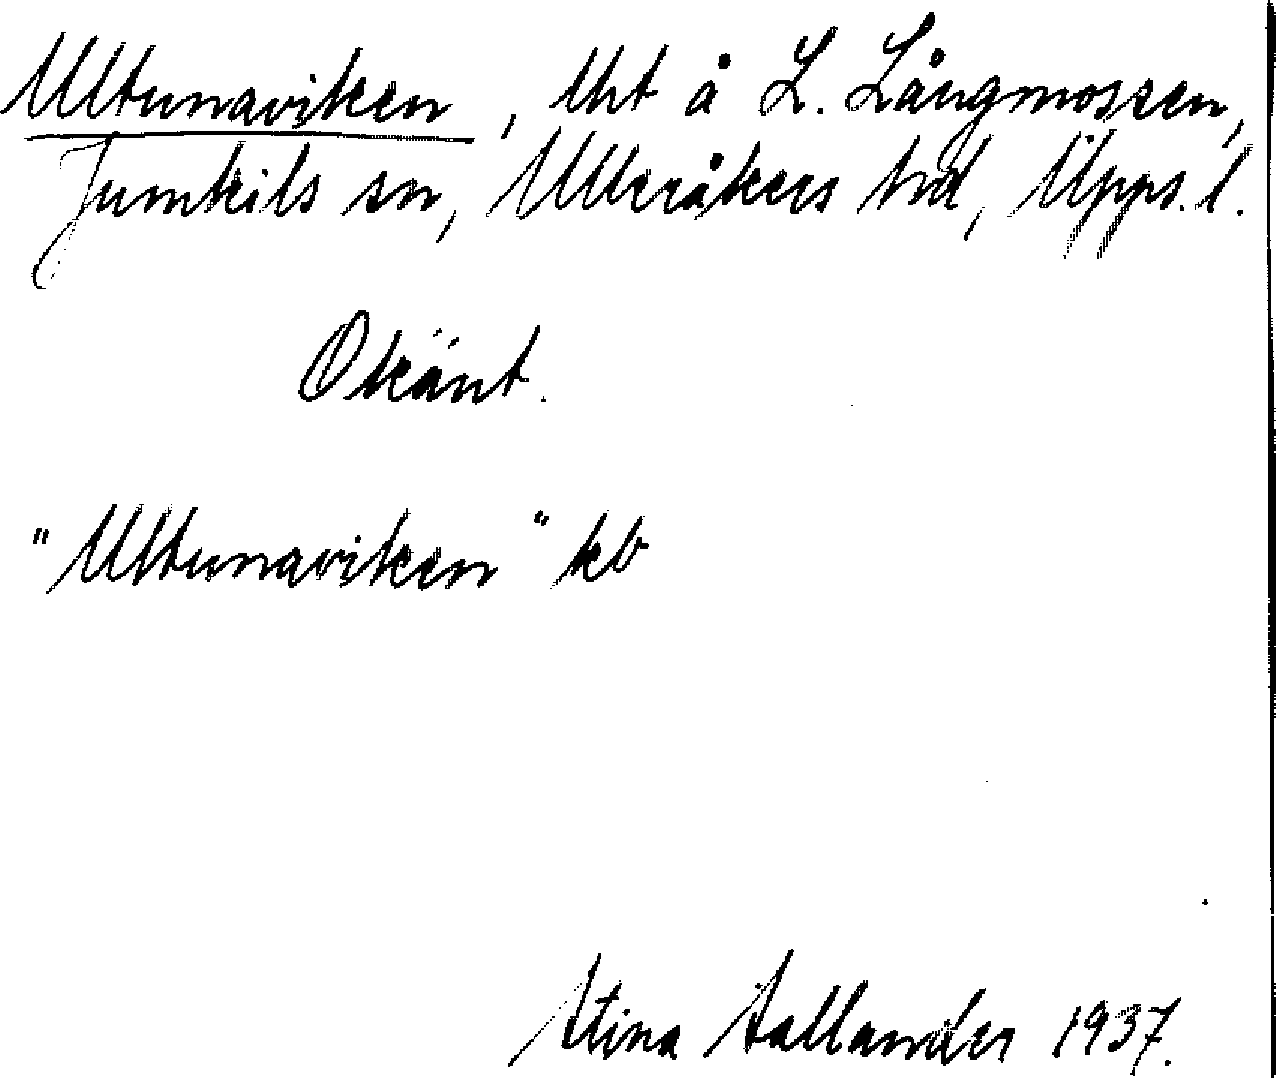 Ultunaviken, lht å L. Långmossen,
Jumkils sn, Ulleråkers hd, Upps. l.
Okänt.
"Ultunaviken" kb
Stina Sallander 1937.